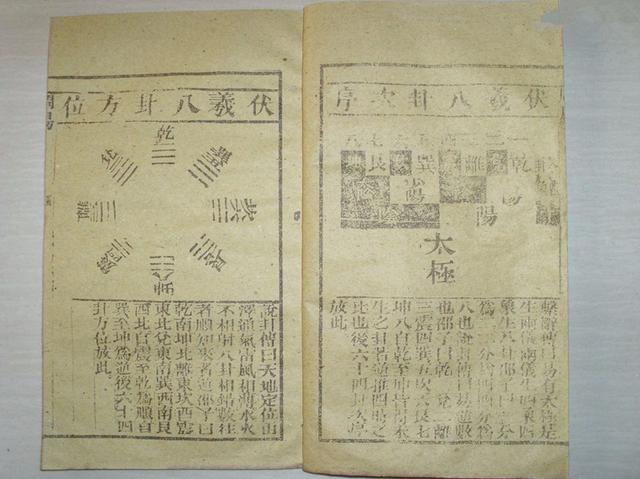 伏羲八卦次序
八七艮巽離乾
陽陽
太極
繫辭傳曰易有太極是
生兩儀兩儀生四象四
象生八卦邵子曰一分
為二二分為四四分為
八也說卦傳曰易逆數
也邵子曰乾一兌二離
三震四巽五坎六艮七
坤八自乾至坤皆得未
生之卦若逆推四時之
比也後六十四卦次序
放此
周易
伏羲八卦方位
乾
說卦傳曰天地定位山
澤通氣雷風相薄水火
不相射八卦相錯數往
者順知來者逆邵子曰
乾南坤北離東坎西震
東北兌東南巽西南艮
西北自震至乾為順自
巽至坤為逆後六十四
卦方位放此